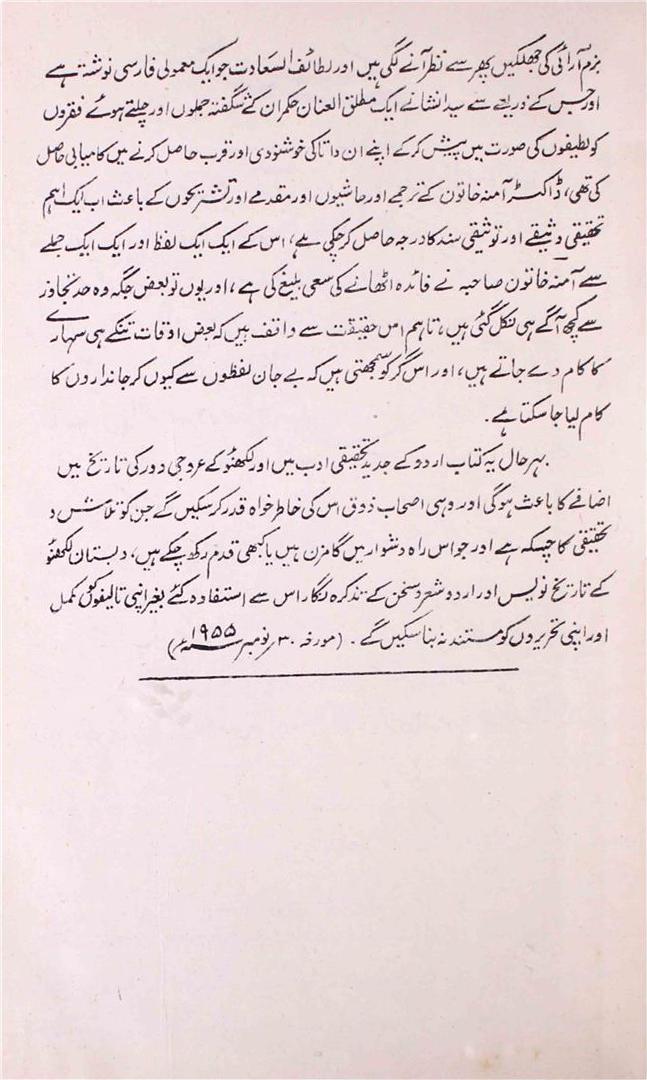 بزم آرائی کی جھلکیں پھر سے نظر آنے لگی ہیں اور لطائف السعادت جو ایک معمولی فارسی نوشتہ ہے
اور جس کے ذریعے سے سید انشا نے ایک مطلق العنان حکمران کئے شگفتہ جملوں اور چلتے ہوئے فقروں
کو لطیفوں کی صورت میں پیش کر کے اپنے ان داتا کی خوشنودی اور قرب حاصل کرنے میں کامیابی حاصل
کی تھی، ڈاکٹر آمنہ خاتون کے ترجمے اور حاشیوں اور مقدمے اور تشریحوں کے باعث اب ایک اہم
تحقیقی وثیقے اور توثیقی سند کا درجہ حاصل کر چکی ہے، اس کے ایک ایک لفظ اور ایک ایک جملے
سے آمنہ خاتون صاحبہ نے فائدہ اٹھانے کی سعی بلیغ کی ہے، اور یوں تو بعض جگہ وہ حد تجاوز
سے کچھ آگے ہی نکل گئی ہیں، تاہم اس حقیقت سے واقف ہیں کہ بعض اوقات تنکے ہی سہارے
کا کام دے جاتے ہیں، اور اس گر کو سمجھتی ہیں کہ بے جان لفظوں سے کیوں کر جانداروں کا
کام لیا جا سکتا ہے۔
بہر حال یہ کتاب اردو کے جدید تحقیقی ادب میں اور لکھنؤ کے عروجی دور کی تاریخ میں
اضافے کا باعث ہوگی اور وہی اصحاب ذوق اس کی خاطر خواہ قدر کر سکیں گے جن کو تلاش و
تحقیقی کا چسکہ ہے اور جو اس راہ دشوار میں گامزن ہیں یا کبھی قدم رکھ چکے ہیں، دبستان لکھنؤ
کے تاریخ نویس اور اردو شعر و سخن کے تذکرہ نگار اس سے استفادہ کئے بغیر اپنی تالیفوں کو مکمل
اور اپنی تحریروں کو مستند نہ بنا سکیں گے۔ (مورخہ ۳۰ نومبر ۱۹۵۵ء)